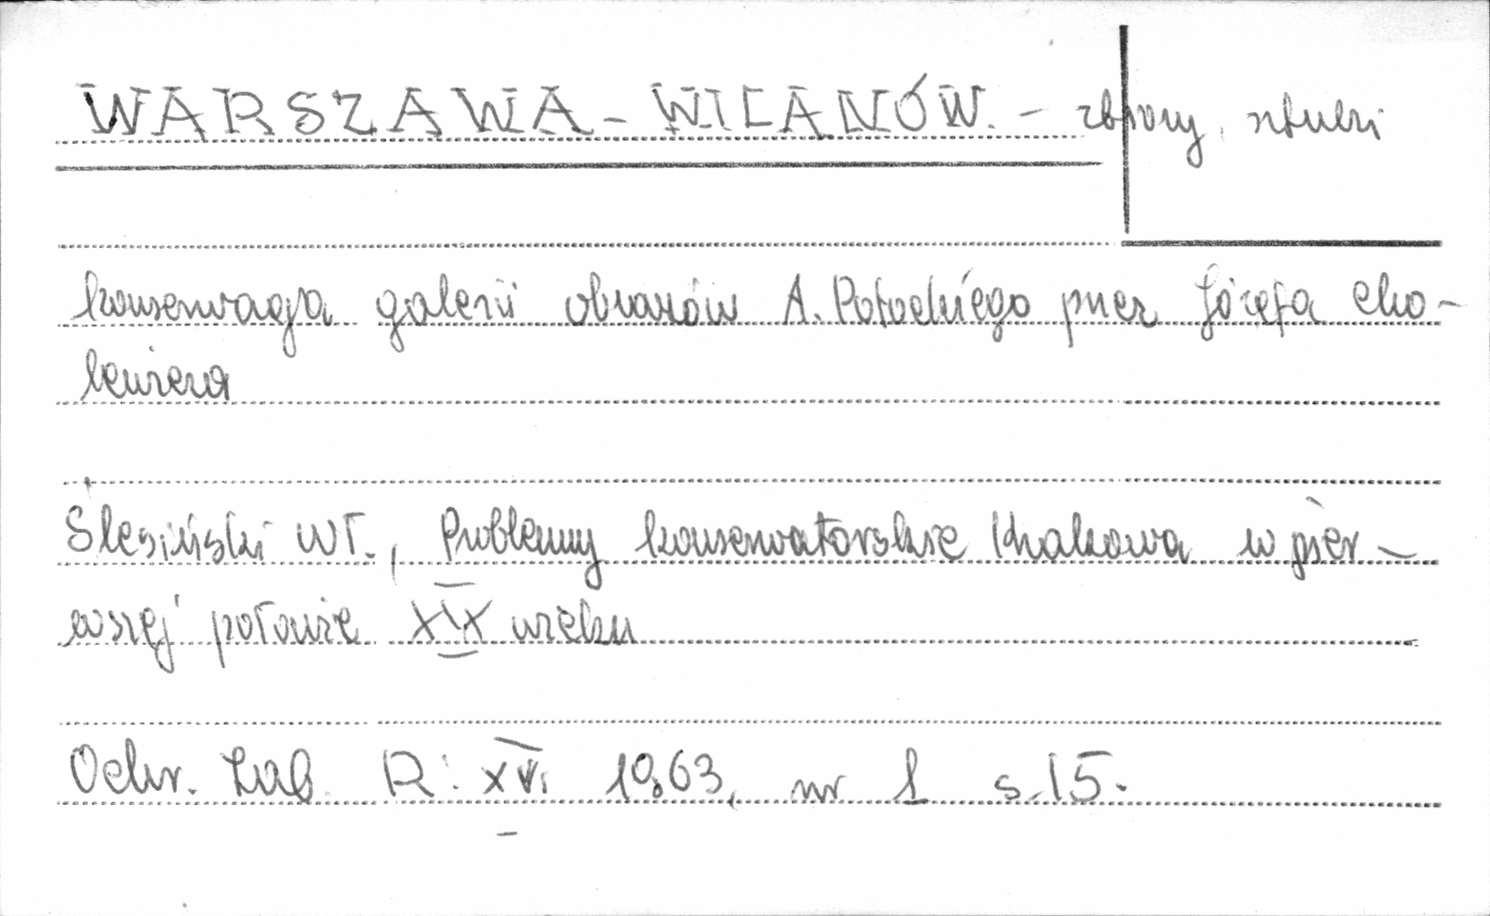 WARSZAWA - WILANÓW. - zbiory sztuki
konserwacja galerii obrazów A. Potockiego przez Józefa Cho-
lewicza
Ślesiński Wł., Problemy konserwatorskie Krakowa w pier-
wszej połowie XIX wieku
Ochr. Zab. R: XVI 1963, nr 1 s. 15.